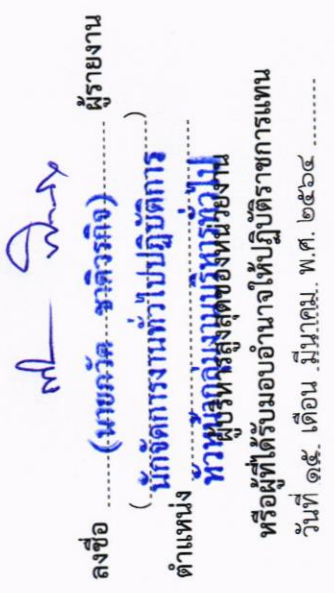 ลงชื่อ ........(นายภวัต ชาติวรกิจ)........ ผู้รายงาน
(...นักจัดการงานทั่วไปปฏิบัติการ...)
ตำแหน่ง ........หัวหน้ากลุ่มงานบริหารทั่วไป
ผู้บริหารสูงสุดของหน่วยงาน
หรือผู้ที่ได้รับมอบอำนาจให้ปฏิบัติราชการแทน
วันที่ ๑๕. เดือน .มีนาคม. พ.ศ. ๒๕๖๔ ...........